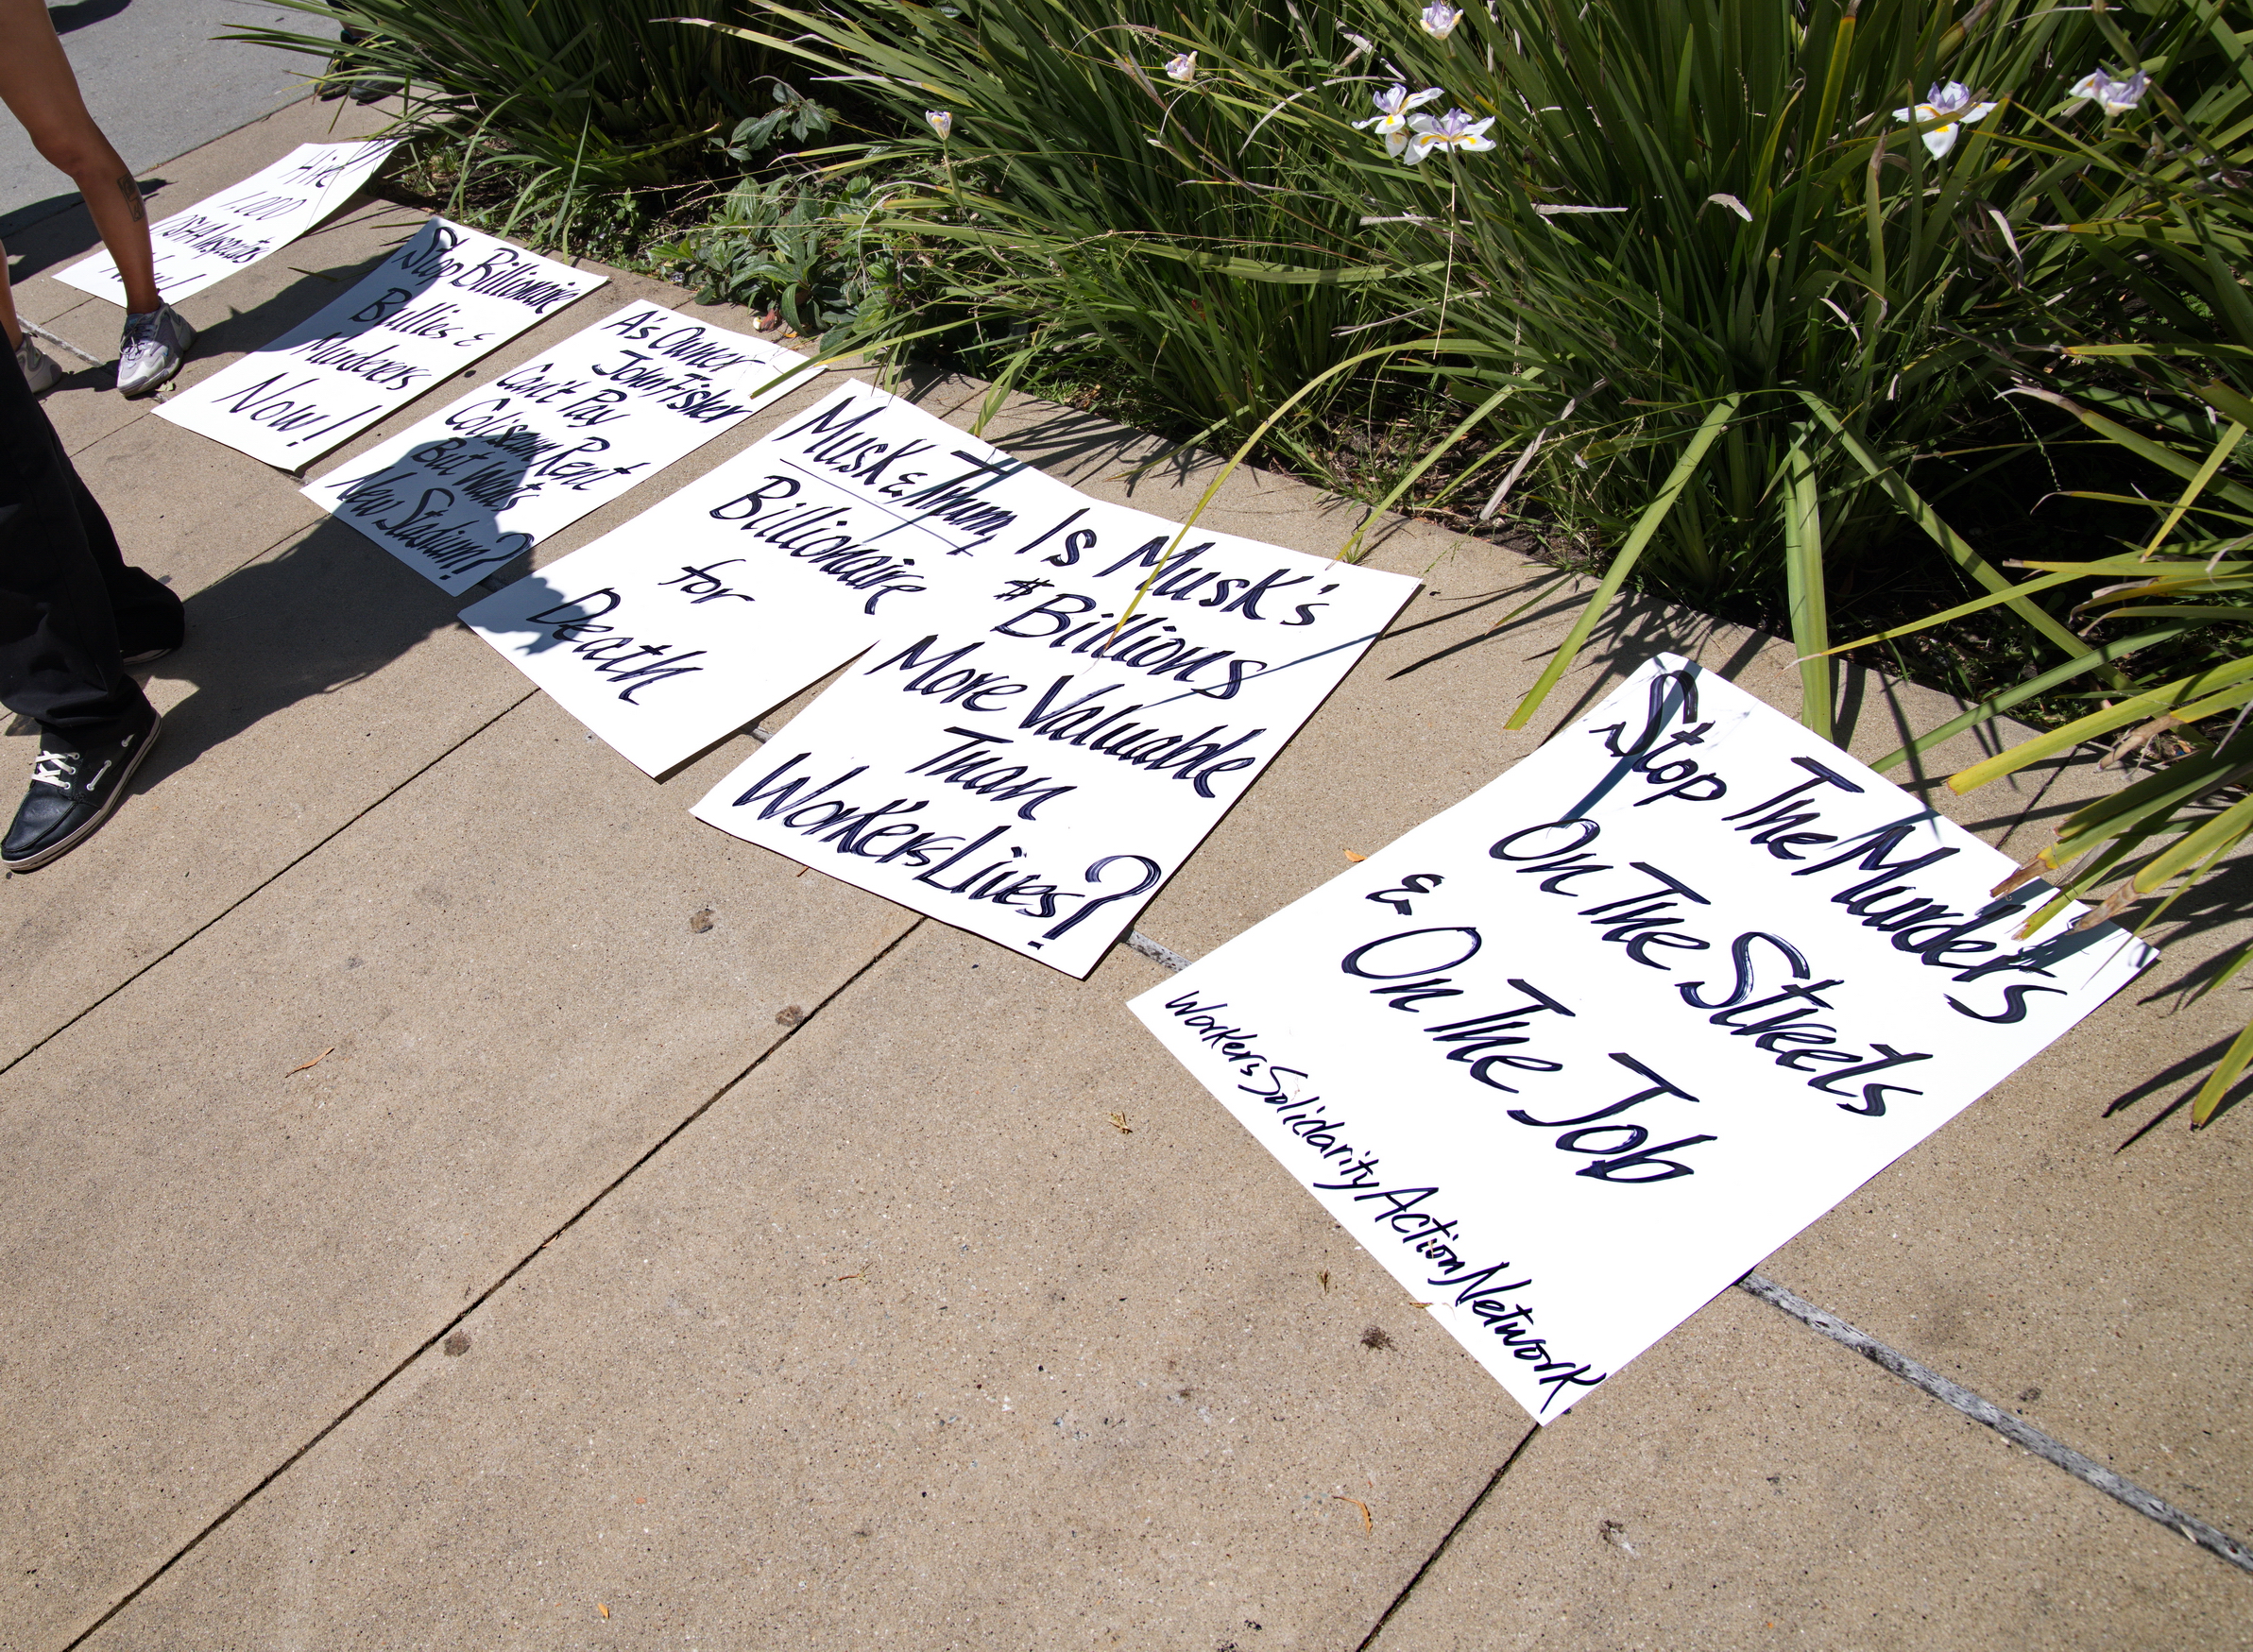 Hire
1,000
OSHA
Now!
Stop Billionaire
Bullies &
Murderers
Now!
A's Owner
John Fisher
Can't Pay
Coliseum Rent
But Wants
New Stadium?
Musk & Trump
Billionaire
for
Death
Is Musk's
$Billions
More Valuable
Than
Workers Lives?
Stop The Murders
On The Streets
& On The Job
Workers Solidarity Action Network